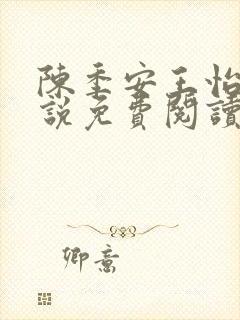 陳季安王怡
說免費閱讀
卿意